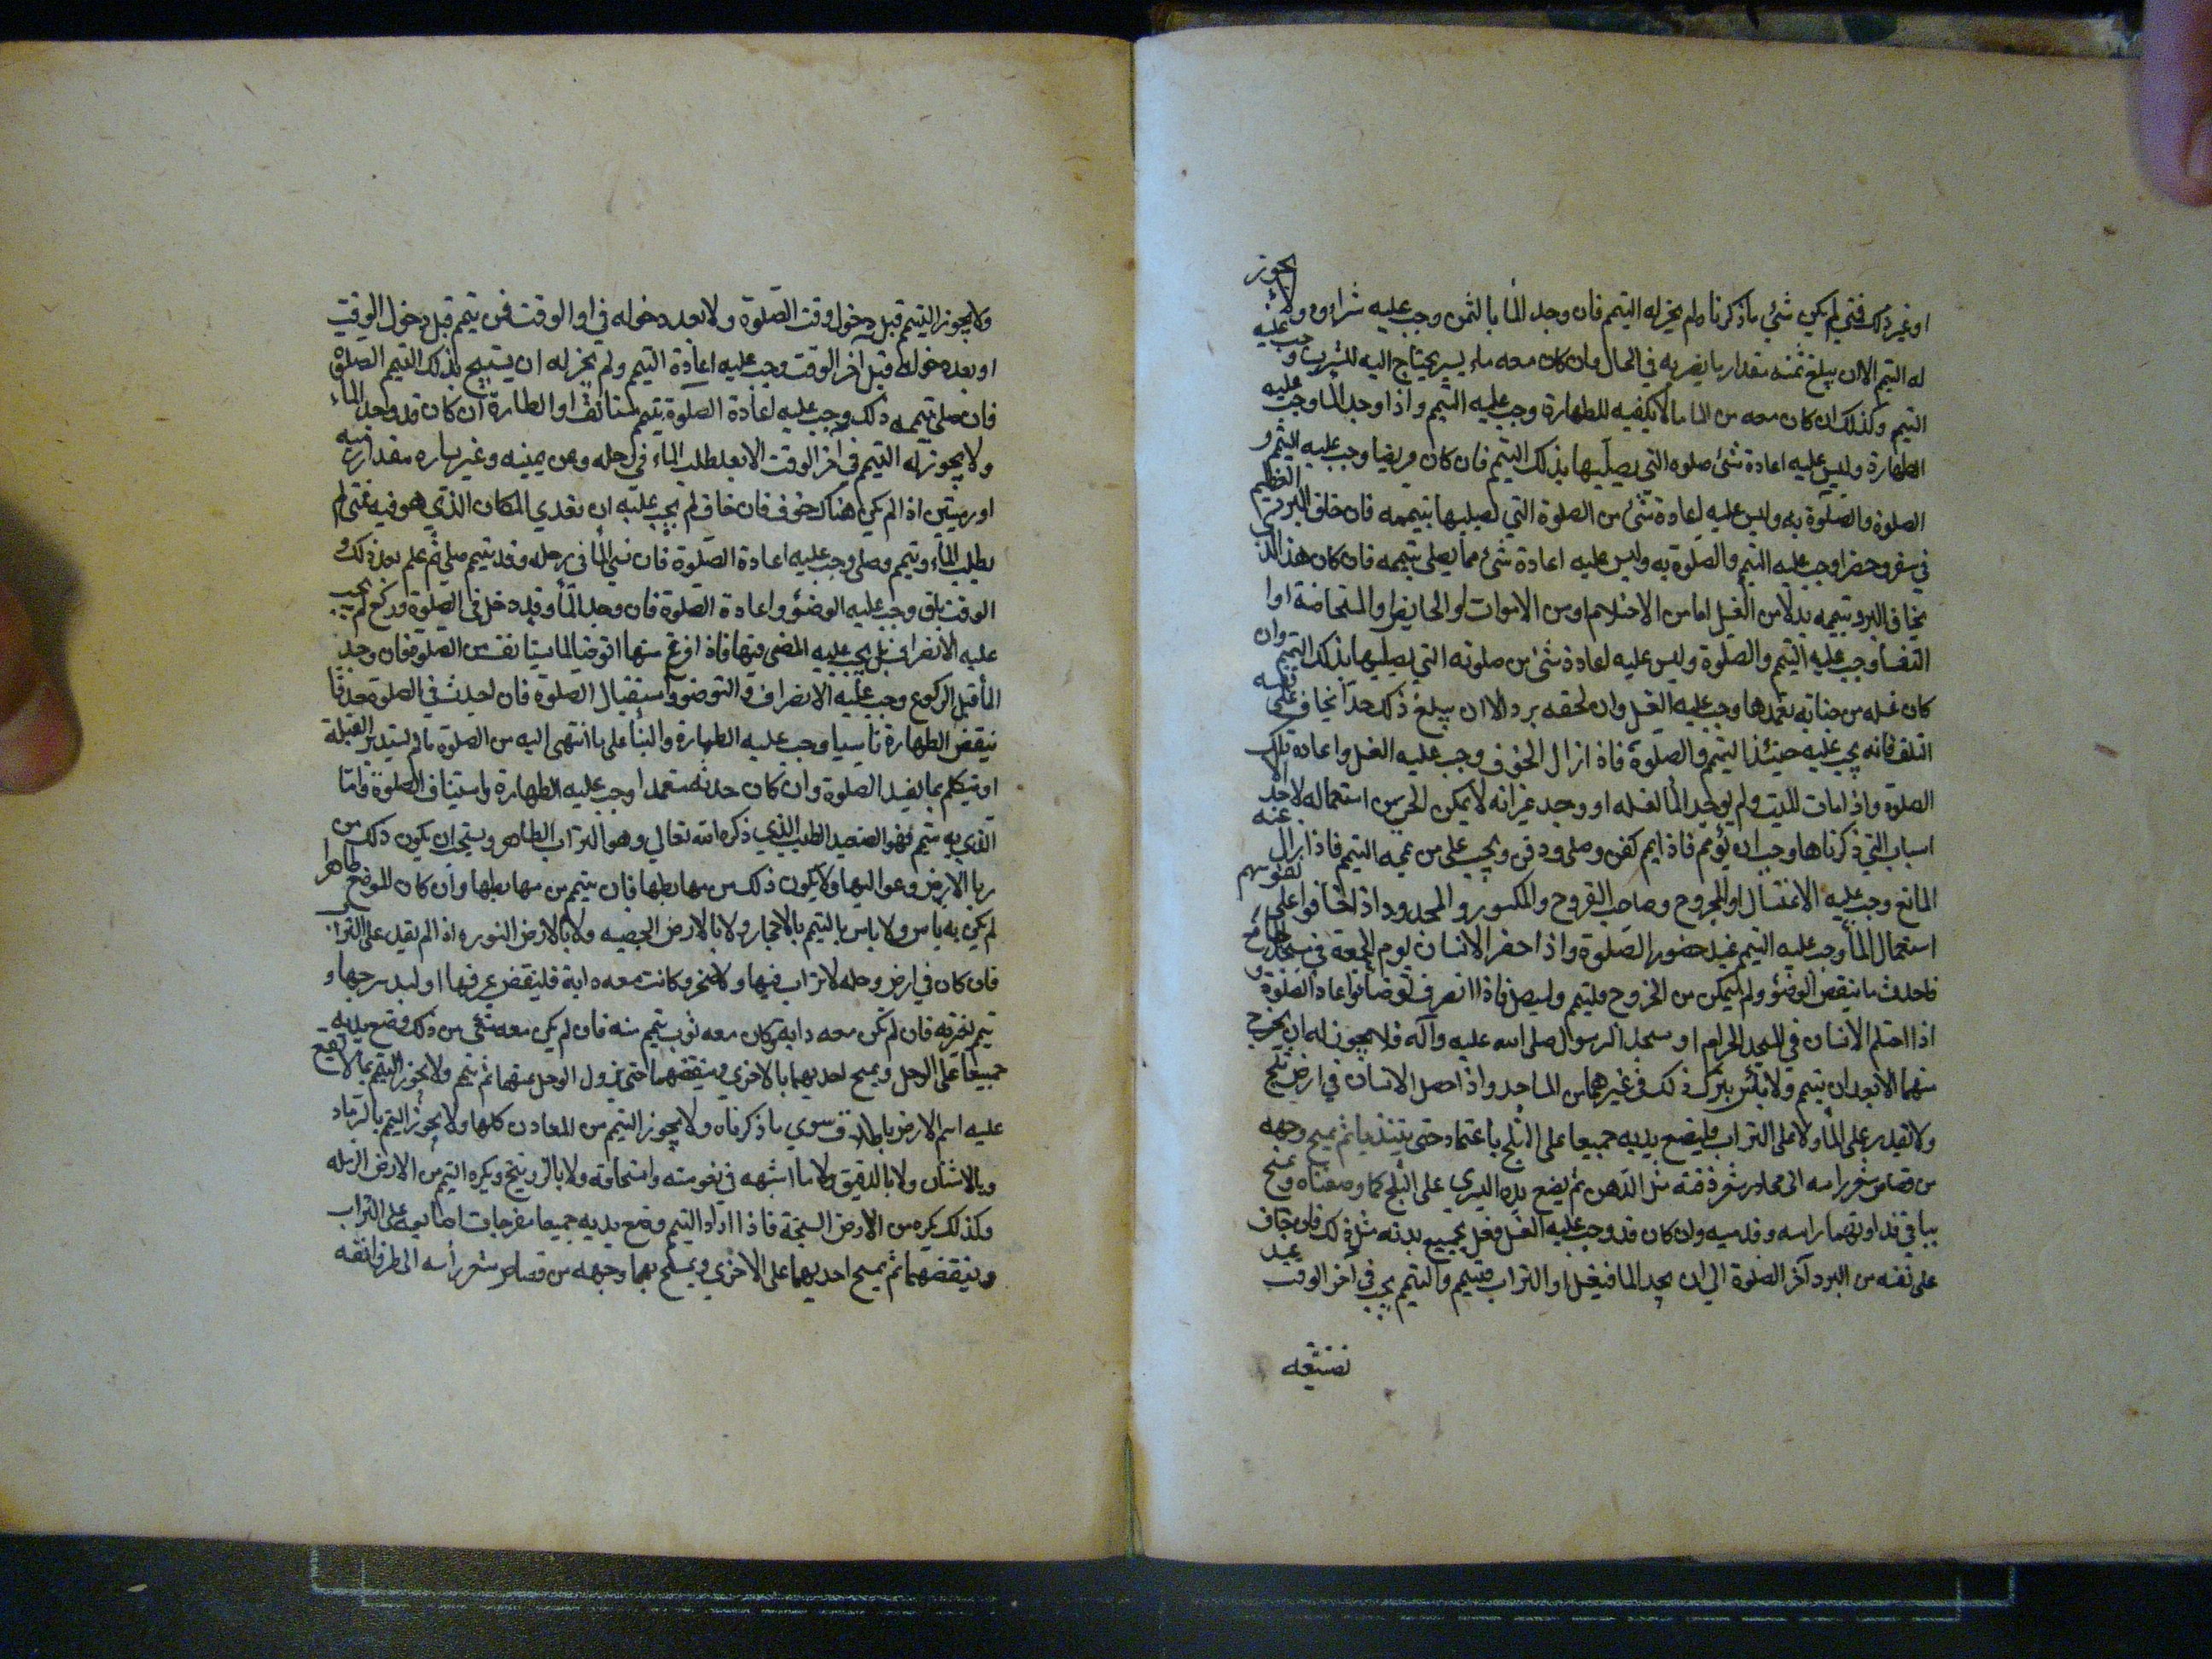 او غير ذلك فمتي لم يكن شئي ما ذكرنا ولم يجز له التيمم فان وجد المأ بالثمن وجب عليه شراوه ولا يجوز
له التيمم الا ان يبلغ ثمنه مقدارا يضر به في الحال وان كان معه ماء يسير يحتاج اليه للشرب وجب عليه
التيم وكذلك ان كان معه من الما ما لا يكفيه للطهارة وجب عليه التيمم واذا وجد الما وجب عليه
الطهارة وليس عليه اعادة شئ صلوه التي يصليها بذلك التيم فان كان مريضا وجب عليه التيم و
الصلوة والصلوة به وليس عليه اعادة شئ من الصلوة التي يصليها بتيممه فان خاف البرد العظيم
في سفر وحضر وجب عليه التيم والصلوة به وليس عليه اعادة شئ مما يصلي بتيممه فان كان هذا الذ
يخاف البرد تيممه بدلا من الغسل اما من الاحتلام او من الاموات او الحايض او المستحاضة او ا
النفسا وجب عليه التيم والصلوة وليس عليه اعادة شئ من صلوته التي يصليها بذلك التيمم وان
كان غسله من جنابة تعمدها وجب عليه الغسل وان لحقه برد الا ان يبلغ ذلك حدا يخاف على نفسه
التلف فانه يجب عليه حينئذ التيمم والصلوة فاذا زال الخوف وجب عليه الغسل واعادة تلك
الصلوة واذا مات الميت ولم يوجد المأ لغسله او وجد غير انه لا يمكن الحي من استعماله لاحد الا
اسباب التي ذكرناها وجب ان يؤمم فاذا يمم كفن وصلى ودفن ويجب على من يممه التيم فاذا زال عنه
المانع وجب عليه الاغتسال او المجروح وصاحب القروح والمكسور والمجدور اذا خافوا على نفوسهم
استعمال المأ وجب عليه التيمم عند حضور الصلوة واذا حضر الانسان يوم الجمعة في مسجد الجامع
فاحدث ما ينقض الوضؤ ولم يتمكن من الخروج فليتيم وليصل فاذا انصرف توضأ واعاد الصلوة و
اذا احتلم الانسان في المسجد الحرام او مسجد الرسول صلى الله عليه وآله فلا يجوز له ان يخرج
منهما الا بعد ان يتيمم ولا بأس بترك ذلك في غيرهما من المساجد واذا حصل الانسان في ارض ثلج
ولا يقدر على المأ ولا على التراب فليضع يديه جميعا على الثلج باعتماد حتى يتنديا ثم يمسح وجهه
من قصاص شعر راسه الى محادر شعر ذقنه مثل الدهن ثم يضع يده اليسري على الثلج كما وصفناه ويمسح
بباقي نداوتهما راسه وقدميه وان كان قد وجب عليه الغسل فعل بجميع بدنه مثل ذلك فان خاف
على نفسه من البرد آخر الصلوة الي ان يجد الما فيغسل او التراب فتيمم والتيمم يجب في آخر الوقت عند
تضيقه
ولا يجوز التيمم قبل دخول وقت الصلوة ولا بعد دخوله في اول الوقت فمن يتمم قبل دخول الوقت
او بعد دخوله قبل اخر الوقت وجب عليه اعادة التيم ولم يجز له ان يستبيح بذلك التيمم الصلوة
فان صلى بتيممه ذلك وجب عليه اعادة الصلوة بتيمم مستانف او الطهارة ان كان قد وجد المأ
ولا يجوز له التيمم في آخر الوقت الا بعد طلب المأء في رحله وعن يمينه وغير يساره مقدار رمية
او رميتين اذا لم يكن هناك خوف فان خاف لم يجب عليه ان يتعدي المكان الذي هو فيه فمتى لم
يطلب المأء وتيمم وصلى وجب عليه اعادة الصلوة فان نسي المأ في رحله وقد تيمم صلي ثم علم بعد ذلك و
الوقت باق وجب عليه الوضؤ واعادة الصلوة فان وجد المأ وقد دخل في الصلوة وركع لم يجب
عليه الانصراف بل يجب عليه المضي فيها فاذا فرغ منها توضا لما يستانف من الصلوة فان وجد
المأ قبل الركوع وجب عليه الانصراف والتوضؤ واستقبال الصلوة فان احدث في الصلوة حدثا
ينقض الطهارة ناسيا وجب عليه الطهارة والبنأ على ما انتهى اليه من الصلوة ما لم يستدبر القبلة
او يتكلم بما يفسد الصلوة وان كان حدثه متعمدا وجب عليه الطهارة واستيناف الصلوة واما
الذي به تيمم فهو الصعيد الطيب الذي ذكره الله تعالي وهو التراب الطاهر ويستحب ان يكون ذلك من
ربا الارض وعواليها ولا يكون ذلك من مهابطها فان تيمم من مهابطها وان كان الموضع طاهرا
لم يكن به باس ولا باس بالتيمم بالاحجار ولا بالارض الجصيه ولا بالارض النوره اذا لم يقدر على التراب
فان كان في ارض وحله لا تراب فيها ولا صخر وكانت معه دابة فلينفض عرفها او لبد سرجها و
تيمم بغبرته فان لم تكن معه دابة وكان معه ثوب تيمم منه فان لم يكن معه شئي من ذلك وضع يديه
جميعا على الوحل ويمسح احديهما بالاخري وينفضهما حتى يزول الوحل عنهما ثم يتيمم ولا يجوز التيمم بما لا يقع
عليه اسم الارض باطلاق سوي ما ذكرناه ولا يجوز التيمم من المعادن كلها ولا يجوز التيمم بالرماد
وبالاشنان ولا بالدقيق ولا ما اشبهه في نعومته وانسحاقه ولا بالزرنيخ ويكره التيمم من الارض الرمله
وكذلك يكره من الارض السبخة فاذا اراد التيمم وضع يديه جميعا مفرجات اصابعه على التراب
وينفضهما ثم يمسح احديهما على الاخري ويمسح بهما وجهه من قصاص شعر رأسه الى طرف انفه